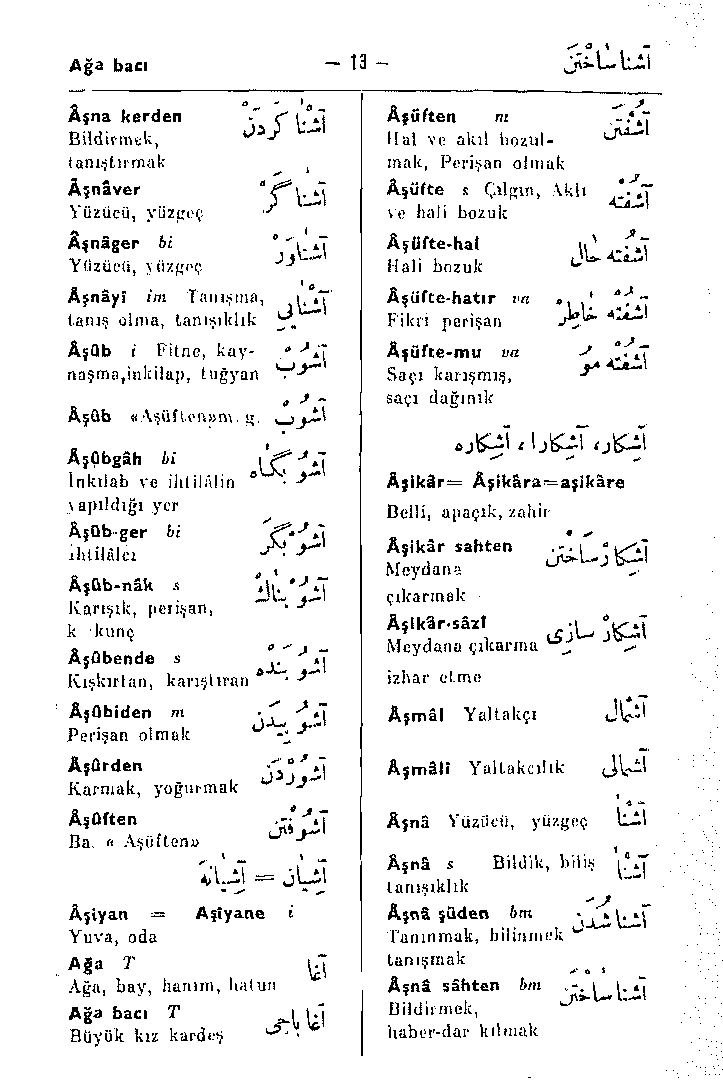 Ağa bacı — 13 — آشنا ساختن
Âşna kerden آشنا كردن
Bildirmek,
tanıştırmak
Âşnâver آشنا گر
Yüzücü, yüzgeç
Âşnâger bi آشناور
Yüzücü, yüzgeç
Âşnâyî im Tanışma, آشنایی
tanış olma, tanışıklık
Âşûb i Fitne, kay- آشوب
naşma,inkilap, tuğyan
Âşûb «Aşüften»m. g. آشوب
Âşûbgâh bi آشوبگاه
İnkılab ve ihtilâlin
yapıldığı yer
Âşûb-ger bi آشوبگر
ihtilâlcı
Âşûb-nâk s آشوبناك
Karışık, perişan,
k kunç
Âşûbende s آشوبنده
Kışkırtan, karıştıran
Âşûbiden m آشوبیدن
Perişan olmak
Âşûrden آشوردن
Karmak, yoğurmak
Âşûften آشوفتن
Ba. « Aşüften»
آشیان = آشیانه
Âşiyan = Aşîyane i
Yuva, oda
Ağa T آغا
Ağa, bay, hanım, hatun
Ağa bacı T آغا باجی
Büyük kız kardeş
Âşüften m آشفتن
Hal ve akıl bozul-
mak, Perişan olmak
Âşüfte s Çılgın, Aklı آشفته
ve hali bozuk
Âşüfte-hal آشفته حال
Hali bozuk
Âşüfte-hatır va آشفته خاطر
Fikri perişan
Âşüfte-mu va آشفته مو
Saçı karışmış,
saçı dağınık
آشكار، آشكارا، آشكاره
Âşikâr= Âşikâra=aşikâre
Belli, apaçık, zahir
Âşikâr sahten آشكار ساختن
Meydana
çıkarmak
Âşikâr-sâzî آشكار سازی
Meydana çıkarma
izhar etme
Âşmâl Yaltakçı آشمال
Âşmâlî Yaltakcılık آشمالی
Âşnâ Yüzücü, yüzgeç آشنا
Âşnâ s Bildik, biliş آشنا
tanışıklık
Âşnâ şüden bm آشنا شدن
Tanınmak, bilinmek
tanışmak
Âşnâ sâhten bm آشنا ساختن
Bildirmek,
haber-dar kılmak